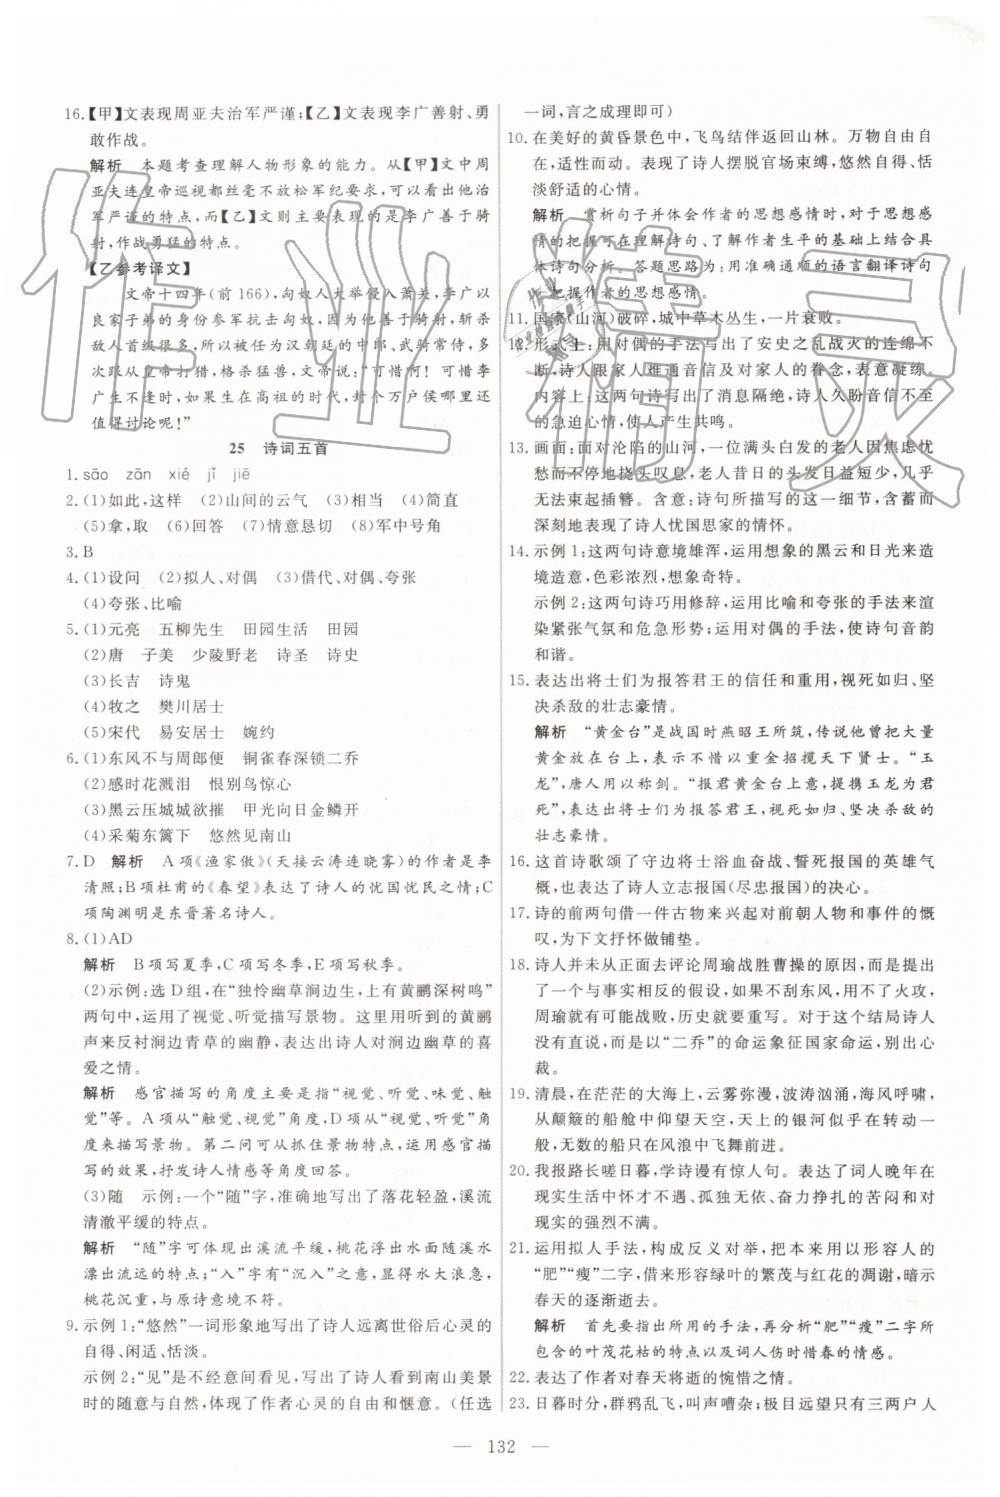 16.【甲】文表现周亚夫治军严谨;【乙】文表现李广善射、勇
敢作战。
解析 本题考查理解人物形象的能力。从【甲】文中周
亚夫连皇帝巡视都丝毫不放松军纪要求,可以看出他治
军严谨的特点,而【乙】文则主要表现的是李广善于骑
射,作战勇猛的特点。
【乙参考译文】
文帝十四年(前 166),匈奴人大举侵入萧关,李广以
良家子弟的身份参军抗击匈奴,因为精通骑射,斩杀
敌人首级很多,所以被任为汉朝廷的中郎、武骑常侍,多
次跟从皇帝打猎,格杀猛兽,文帝说:“可惜啊!可惜李
广生不逢时,如果生在高祖的时代,封个万户侯哪里还
值得讨论呢!”
25 诗词五首
1. sāo zān xié jǐ jiē
2. (1)如此,这样 (2)山间的云气 (3)相当 (4)简直
(5)拿,取 (6)回答 (7)情意恳切 (8)军中号角
3. B
4. (1)设问 (2)拟人、对偶 (3)借代、对偶、夸张
(4)夸张、比喻
5. (1)元亮 五柳先生 田园生活 田园
(2)唐 子美 少陵野老 诗圣 诗史
(3)长吉 诗鬼
(4)牧之 樊川居士
(5)宋代 易安居士 婉约
6. (1)东风不与周郎便 铜雀春深锁二乔
(2)感时花溅泪 恨别鸟惊心
(3)黑云压城城欲摧 甲光向日金鳞开
(4)采菊东篱下 悠然见南山
7. D 解析 A 项《渔家傲》(天接云涛连晓雾)的作者是李
清照;B 项杜甫的《春望》表达了诗人的忧国忧民之情;C
项陶渊明是东晋著名诗人。
8. (1)AD
解析 B 项写夏季,C 项写冬季,E 项写秋季。
(2)示例:选 D 组,在“独怜幽草涧边生,上有黄鹂深树鸣”
两句中,运用了视觉、听觉描写景物。这里用动态的黄鹂
声来反衬涧边青草的幽静,表达出诗人对涧边幽草的喜
爱之情。
解析 感官描写的角度主要是指“视觉、听觉、味觉、触
觉”等。A 项从“触觉、视觉”角度,D 项从“视觉、听觉”角
度来描写景物。第二问可从抓住景物特点,运用感官描
写的效果,抒发诗人情感等角度回答。
(3)随 示例:一个“随”字,准确地写出了落花轻盈,溪流
清澈平缓的特点。
解析 “随”字可体现出溪流平缓,桃花浮出水面随溪水
漂出流远的特点;“入”字有“沉入”之意,显得水大浪急,
桃花沉重,与原诗意境不符。
9. 示例 1:“悠然”一词形象地写出了诗人远离世俗后心灵的
自得、闲适、恬淡。
示例 2:“见”是不经意间看见,写出了看到南山美景
时的随意与自然,体现了作者心灵的自由和惬意。(任选
一词,言之成理即可)
10. 在美好的黄昏景色中,飞鸟结伴返回山林。万物自由自
在,适性而动。表现了诗人摆脱官场束缚,悠然自得、恬
淡舒适的心情。
解析 赏析句子并体会作者的思想感情时,对于思想感
情的把握可在理解诗句、了解作者生平的基础上结合具
体诗句分析。答题思路为:用准确通顺的语言翻译诗句
—把握作者的思想感情。
11. 国家(山河)破碎,城中草木丛生,一片衰败。
12. 形式上:用对偶的手法写出了安史之乱战火的连绵不
断,诗人跟家人难通音信及对家人的眷念,表意凝练。
内容上:这两句诗写出了消息隔绝,诗人久盼音信不至
的急迫心情,使人产生共鸣。
13. 画面:面对沦陷的山河,一位满头白发的老人因焦虑忧
愁而不停地挠头叹息,老人昔日的头发日益短少,几乎
无法束起插簪。含意:诗句所描写的这一细节,含蓄而
深刻地表现了诗人忧国思家的情怀。
14. 示例 1:这两句诗意境雄浑,运用想象的黑云和日光来造
境造意,色彩浓烈,想象奇特。
示例 2:这两句诗巧用修辞,运用比喻和夸张的手法来渲
染紧张气氛和危急形势;运用对偶的手法,使诗句音韵
和谐。
15. 表达出将士们为报答君王的信任和重用,视死如归、坚
决杀敌的壮志豪情。
解析 “黄金台”是战国时燕昭王所筑,传说他曾把大量
黄金放在台上,表示不惜以重金招揽天下贤士。“玉
龙”,唐人用以称剑。“报君黄金台上意,提携玉龙为君
死”,表达出将士们为报答君王,视死如归、坚决杀敌的
壮志豪情。
16. 这首诗歌颂了守边将士浴血奋战、誓死报国的英雄气
概,也表达了诗人立志报国(尽忠报国)的决心。
17. 诗的前两句借一件古物来兴起对前朝人物和事件的慨
叹,为下文抒怀做铺垫。
18. 诗人并未从正面去评论周瑜战胜曹操的原因,而是提出
了一个与事实相反的假设,如果不刮东风,用不了火攻,
周瑜就有可能战败,历史就要重写。对于这个结局诗人
没有直说,而是以“二乔”的命运象征国家命运,别出心
裁。
19. 清晨,在茫茫的大海上,云雾弥漫,波涛汹涌,海风呼啸,
从颠簸的船舱中仰望天空,天上的银河似乎在转动一
般,无数的船只在风浪中飞舞前进。
20. 我报路长嗟日暮,学诗谩有惊人句。表达了词人晚年在
现实生活中怀才不遇、孤独无依、奋力挣扎的苦闷和对
现实的强烈不满。
21. 运用拟人手法,构成反义对举,把本来用以形容人的
“肥”“瘦”二字,借来形容绿叶的繁茂与红花的凋谢,暗示
春天的逐渐逝去。
解析 首先要指出所用的手法,再分析“肥”“瘦”二字所
包含的叶茂花枯的特点以及词人伤春惜春的情感。
22. 表达了作者对春天将逝的惋惜之情。
23. 日暮时分,群鸦乱飞,叫声嘈杂;极目远望只有三两户人
— 132 —
作业精灵